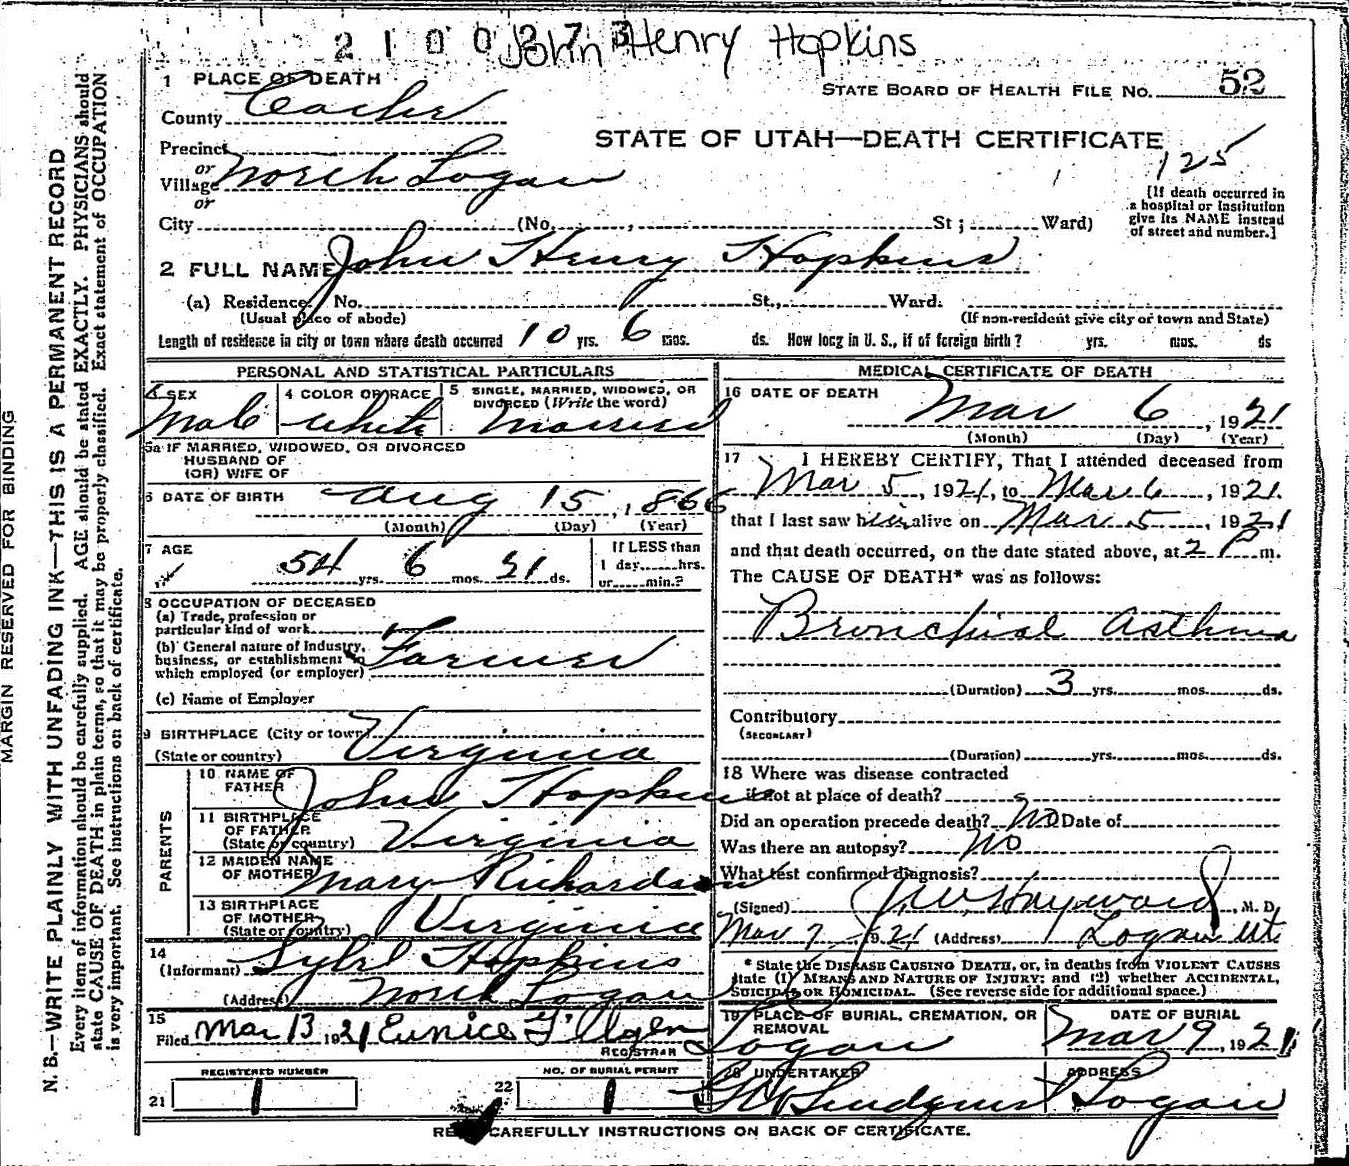 2 1 0 0 3 7 3 John Henry Hopkins
1 PLACE OF DEATH
STATE BOARD OF HEALTH FILE NO. 52
County Cache
STATE OF UTAH—DEATH CERTIFICATE
Precinct
125
or
Village North Logan
or
[If death occurred in
a hospital or institution
give its NAME instead
of street and number.]
City (No. , St; Ward)
2 FULL NAME John Henry Hopkins
(a) Residence. No. St., Ward.
(Usual place of abode) (If non-resident give city or town and State)
Length of residence in city or town where death occurred 10 yrs. 6 mos. ds. How long in U. S., if of foreign birth? yrs. mos. ds
PERSONAL AND STATISTICAL PARTICULARS
3 SEX
Male
4 COLOR OR RACE
White
5 SINGLE, MARRIED, WIDOWED, OR
DIVORCED (Write the word)
Married
5a IF MARRIED, WIDOWED, OR DIVORCED
HUSBAND OF
(OR) WIFE OF
6 DATE OF BIRTH Aug 15, 1866
(Month) (Day) (Year)
7 AGE
54 yrs. 6 mos. 21 ds.
If LESS than
1 day hrs.
or min.?
8 OCCUPATION OF DECEASED
(a) Trade, profession or
particular kind of work
(b) General nature of industry,
business, or establishment in
which employed (or employer) Farmer
(c) Name of Employer
9 BIRTHPLACE (City or town)
(State or country) Virginia
PARENTS
10 NAME OF
FATHER John Hopkins
11 BIRTHPLACE
OF FATHER
(State or country) Virginia
12 MAIDEN NAME
OF MOTHER Mary Richardson
13 BIRTHPLACE
OF MOTHER
(State or country) Virginia
14
(Informant) Sybil Hopkins
(Address) North Logan
15
Filed Mar 13 1921 Eunice G.
REGISTRAR
REGISTERED NUMBER
21 1
NO. OF BURIAL PERMIT
22 1
MEDICAL CERTIFICATE OF DEATH
16 DATE OF DEATH
Mar 6, 1921
(Month) (Day) (Year)
17 I HEREBY CERTIFY, That I attended deceased from
Mar 5, 1921, to Mar 6, 1921.
that I last saw him alive on Mar 5, 1921
and that death occurred, on the date stated above, at 2 P m.
The CAUSE OF DEATH* was as follows:
Bronchial Asthma
(Duration) 3 yrs. mos. ds.
Contributory
(SECONDARY)
(Duration) yrs. mos. ds.
18 Where was disease contracted
if not at place of death?
Did an operation precede death? No Date of
Was there an autopsy? No
What test confirmed diagnosis?
(Signed) J. W. Hayward M. D.
Mar 7 1921 (Address) Logan Ut
* State the DISEASE CAUSING DEATH, or, in deaths from VIOLENT CAUSES
state (1) MEANS AND NATURE OF INJURY; and (2) whether ACCIDENTAL,
SUICIDAL OR HOMICIDAL. (See reverse side for additional space.)
19 PLACE OF BURIAL, CREMATION, OR
REMOVAL
Logan
DATE OF BURIAL
Mar 9, 1921
20 UNDERTAKER
Lindquist
ADDRESS
Logan
READ CAREFULLY INSTRUCTIONS ON BACK OF CERTIFICATE.
MARGIN RESERVED FOR BINDING
N. B.—WRITE PLAINLY WITH UNFADING INK—THIS IS A PERMANENT RECORD
Every item of information should be carefully supplied. AGE should be stated EXACTLY. PHYSICIANS should
state CAUSE OF DEATH in plain terms, so that it may be properly classified. Exact statement of OCCUPATION
is very important. See instructions on back of certificate.